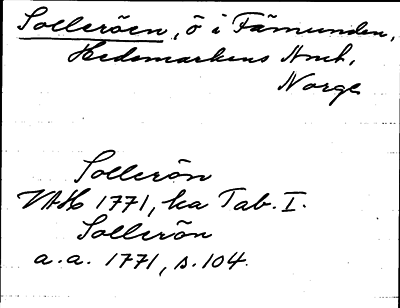 Solleröen, ö i Fämunden,
Hedemarkens Amt,
Norge
Sollerön
VAH 1771, ka Tab. I.
Sollerön
a.a. 1771, s. 104.